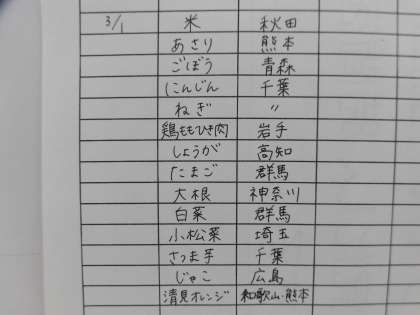 3/1 米 秋田
あさり 熊本
ごぼう 青森
にんじん 千葉
ねぎ 〃
鶏ももひき肉 岩手
しょうが 高知
たまご 群馬
大根 神奈川
白菜 群馬
小松菜 埼玉
さつま芋 千葉
じゃこ 広島
清見オレンジ 和歌山・熊本